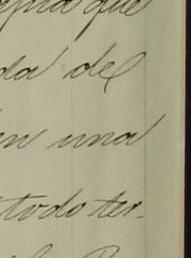 que
da del
en una
todo ter-